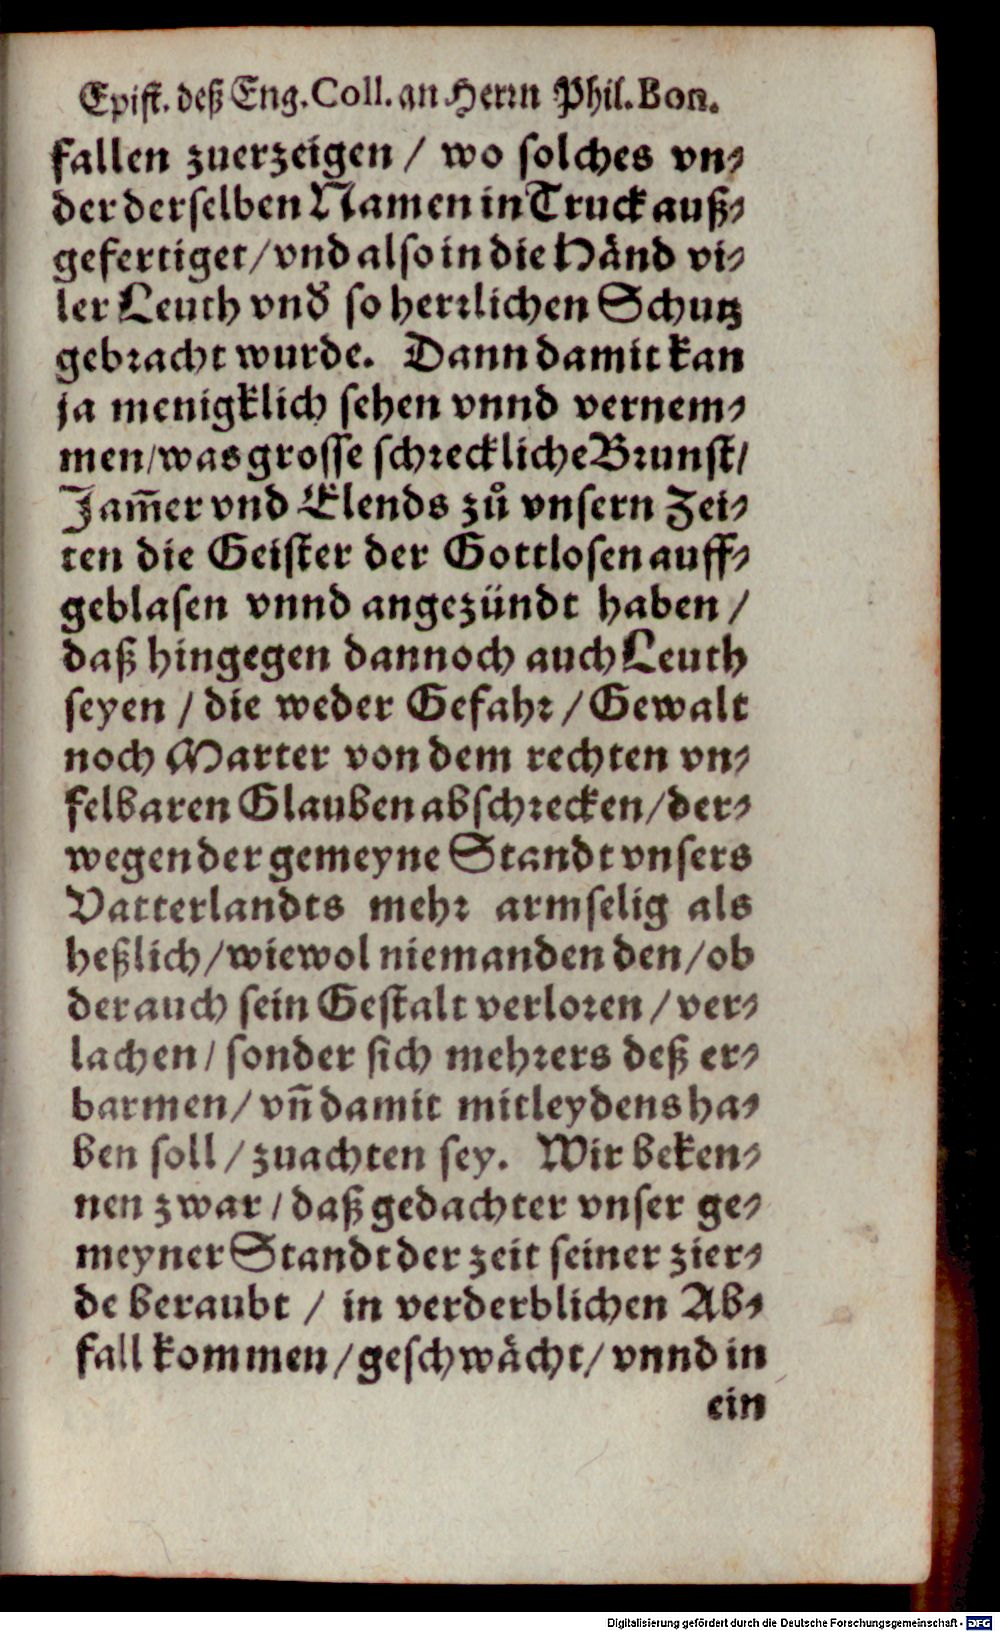 Epist. deß Eng. Coll. an Herrn Phil. Bon.
fallen zuerzeigen / wo solches vn⸗
der derselben Namen in Truck auß⸗
gefertiget / vnd also in die Händ vi⸗
ler Leuth vnd so herrlichen Schutz
gebracht wurde. Dann damit kan
ja menigklich sehen vnnd vernem⸗
men / was grosse schreckliche Brunst /
Jam̄er vnd Elends zů vnsern Zei⸗
ten die Geister der Gottlosen auff⸗
geblasen vnnd angezündt haben /
daß hingegen dannoch auch Leuth
seyen / die weder Gefahr / Gewalt
noch Marter von dem rechten vn⸗
felbaren Glauben abschrecken / der⸗
wegen der gemeyne Standt vnsers
Vatterlandts mehr armselig als
heßlich / wiewol niemanden den / ob
der auch sein Gestalt verloren / ver⸗
lachen / sonder sich mehrers deß er⸗
barmen / vn̄ damit mitleydens ha⸗
ben soll / zuachten sey. Wir beken⸗
nen zwar / daß gedachter vnser ge⸗
meyner Standt der zeit seiner zier⸗
de beraubt / in verderblichen Ab⸗
fall kommen / geschwächt / vnnd in
ein
Digitalisierung gefördert durch die Deutsche Forschungsgemeinschaft - DFG